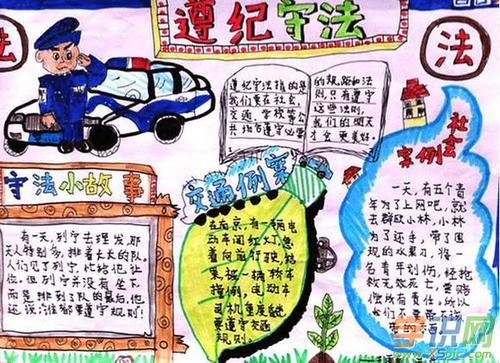 遵纪守法
法
法
遵纪守法指的是
我们要在社会、
交通、学校等公
共场者遵守必要
的规距和法
则,只有遵守
这些法则,
我们的明天
才会更美好。
守法小故事
有一天,列宁去理发,那
天人特别多,排着长长的队。
人们见了列宁,比给他让
位。但列宁并没有坐下
而是排到了队的最后,他
还说:谁都要遵守规则!
交通例案
在南京,有一辆电
动车闯红灯,
着向前行驶,结
果被一辆轿车
撞倒,电动车
司机重度
要遵守交通
规则。
社会
案例
一天,有五个青
年为了上网吧,就
去群殴小林,小林
为了还手,带了围
观的水果刀,将一
名青年刺伤,经抢
救无效死亡,要赔
偿所有责任,所以
我们不要带不该
带的东西
学识网